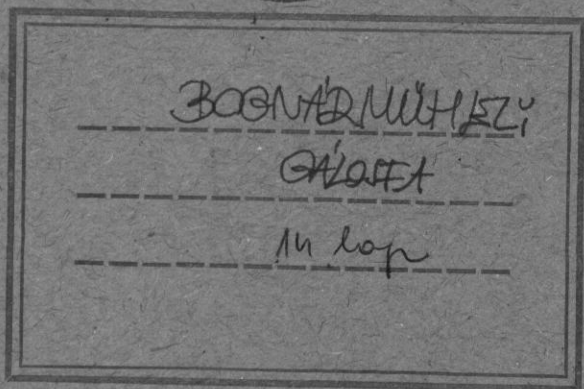 BOGNÁRMŰHELY
GÁLOSFA
14 lap